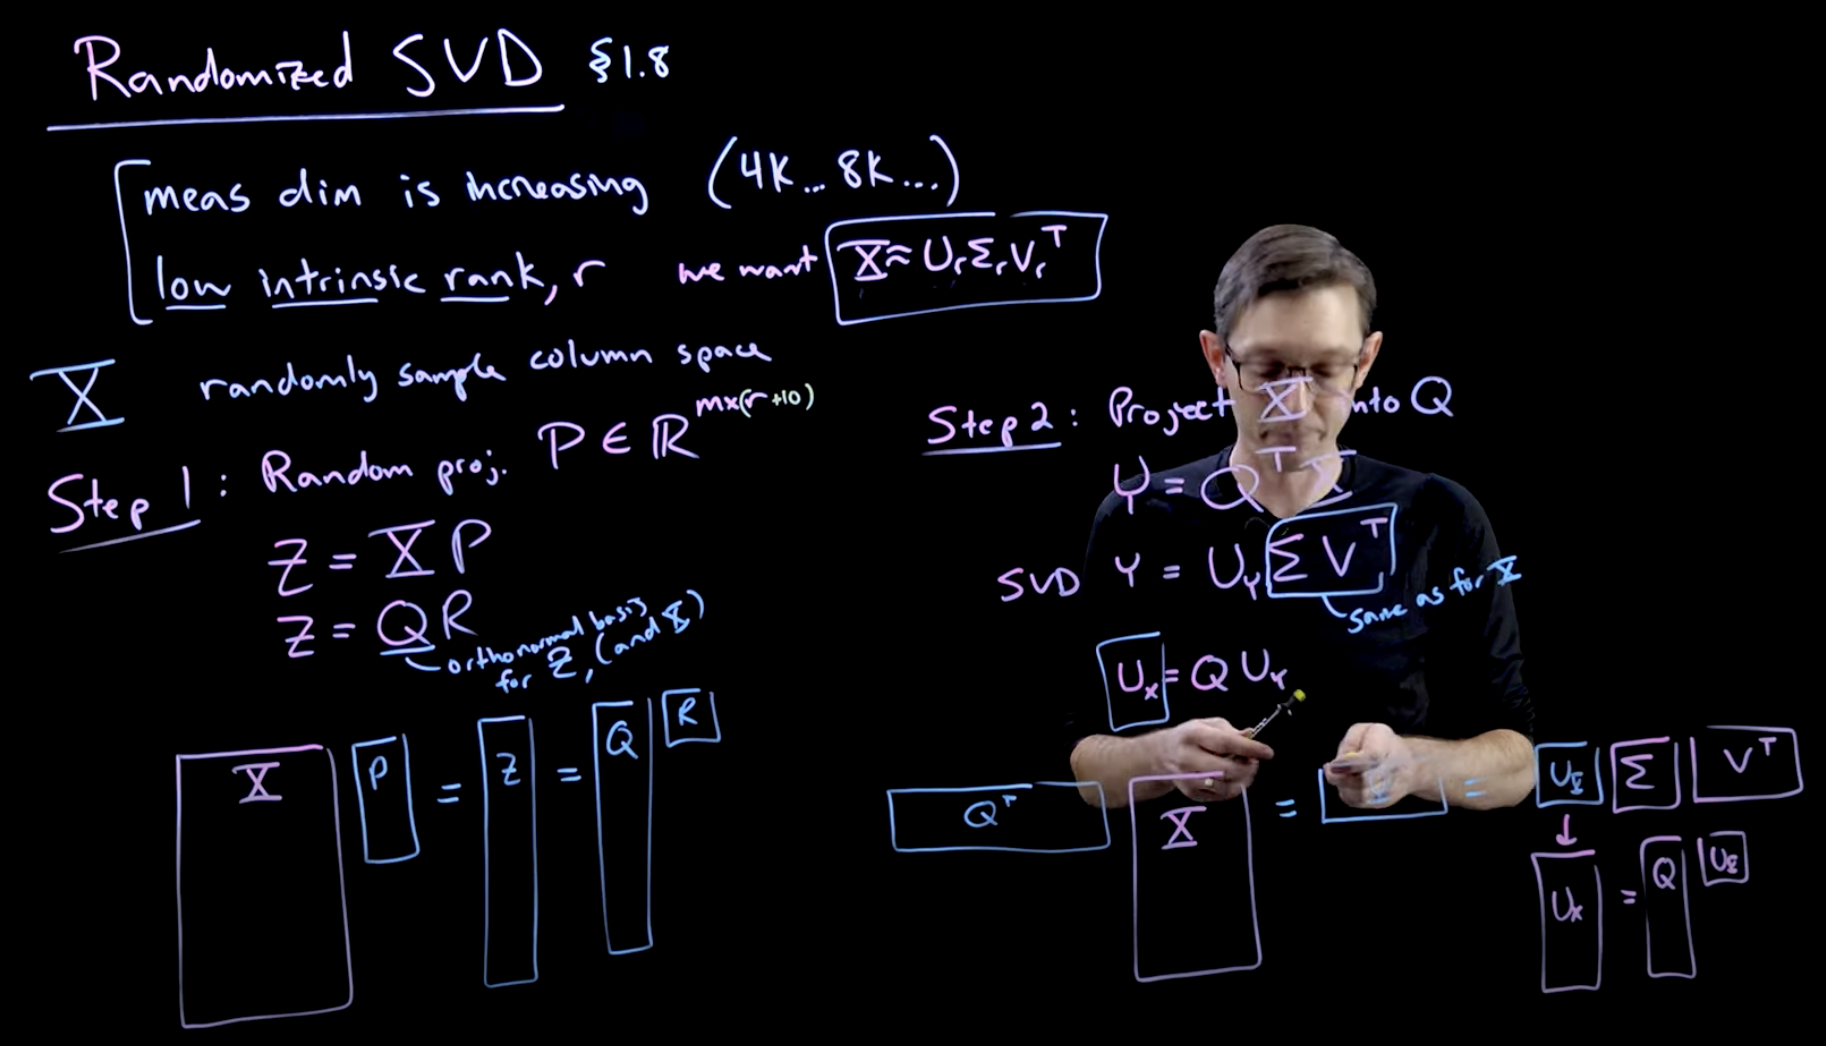 Randomized SVD §1.8
meas dim is increasing (4K... 8K...)
low intrinsic rank, r we want X≈UᵣΣᵣVᵣᵀ
X randomly sample column space
Step 1: Random proj. P ∈ ℝ^mx(r+10)
Z = XP
Z = QR
orthonormal basis
for Z, (and X)
X P = Z = Q R
Step 2: Project X into Q
Y = QᵀX
SVD Y = U_Y Σ Vᵀ
same as for X
Uₓ = Q U_Y
Qᵀ X = = Σ Vᵀ
Uₓ = Q